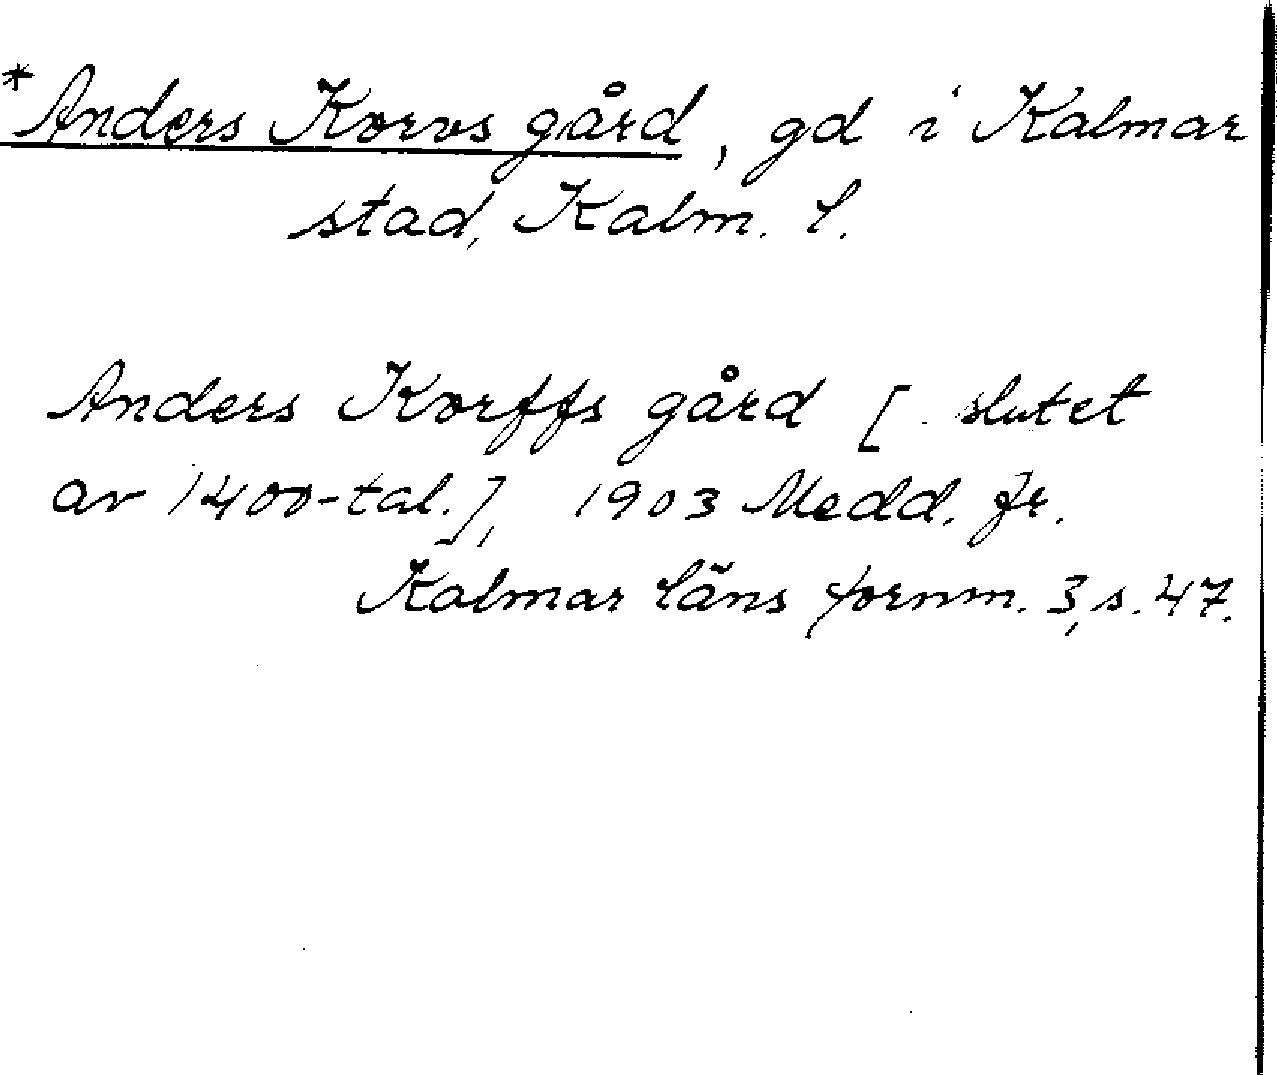 *Anders Korvs gård, gd i Kalmar
stad, Kalm. l.
Anders Korffs gård [slutet
av 1400-tal.], 1903 Medd. fr.
Kalmar läns fornm. 3, s. 47.